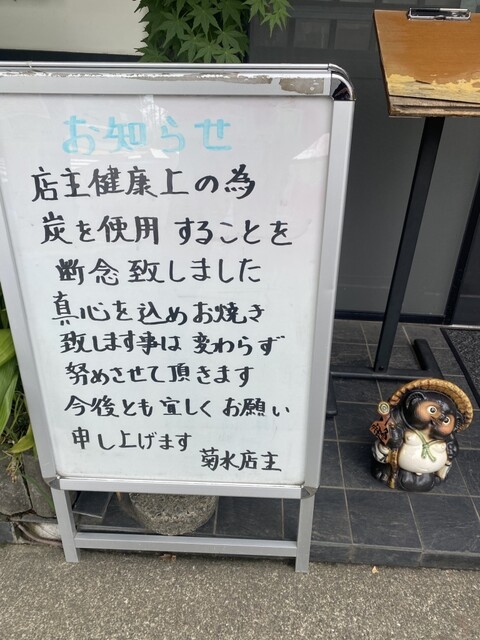 お知らせ
店主健康上の為
炭を使用することを
断念致しました
真心を込めお焼き
致します事は変わらず
努めさせて頂きます
今後とも宜しくお願い
申し上げます
菊水店主